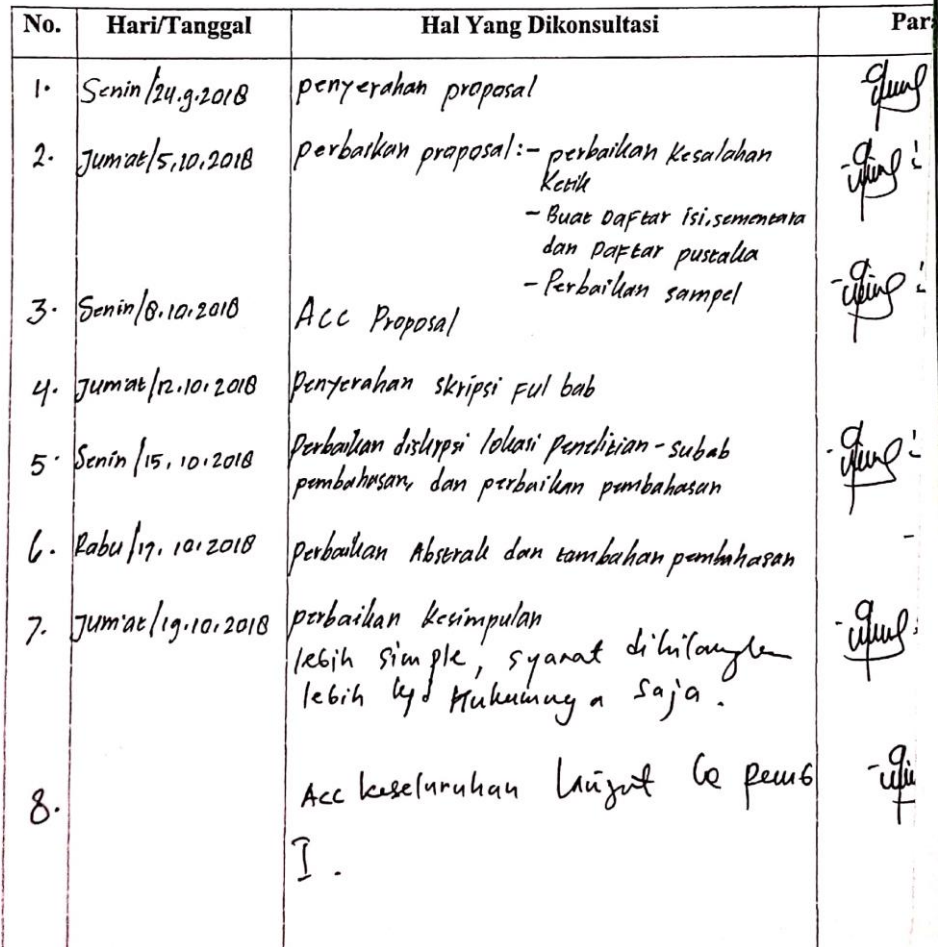 No. Hari/Tanggal Hal Yang Dikonsultasi Par
1. Senin/24.9.2018 penyerahan proposal
2. Jum'at/5,10,2018 perbaikan proposal:- perbaikan kesalahan
ketik
- Buat Daftar isi, sementara
dan Daftar pustaka
- Perbaikan sampel
3. Senin/8.10.2018 Acc Proposal
4. Jum'at/12.10.2018 Penyerahan skripsi Ful bab
5. Senin/15,10.2018 Perbaikan diskripsi lokasi penelitian - subab
pembahasan, dan perbaikan pembahasan
6. Rabu/17,10.2018 perbaikan Abstrak dan tambahan pembahasan
7. Jum'at/19.10.2018 perbaikan kesimpulan
lebih simple, syarat dihilangkn
lebih kpd Hukumnya saja.
8. Acc keseluruhan lanjut ke pemb
I.